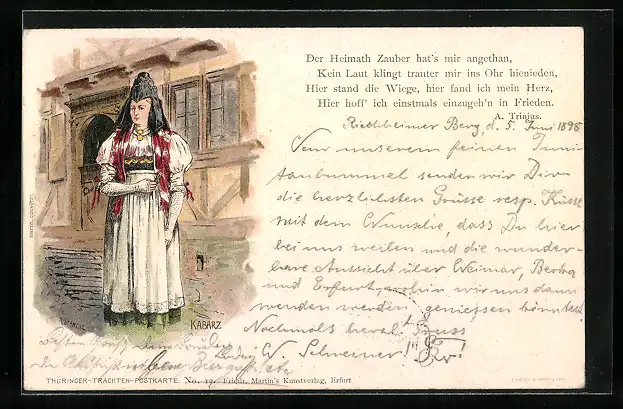 Der Heimath Zauber hat's mir angethan,
Kein Laut klingt trauter mir ins Ohr hienieden,
Hier stand die Wiege, hier fand ich mein Herz,
Hier hoff' ich einstmals einzugeh'n in Frieden.
A. Trinius.
Riechheimer Berg d. 5. Juni 1898
Von unserem feinen
senden wir Dir
die herzlichsten Grüsse resp. Küsse
mit dem Wunsche, dass Du hier
bei uns weilen und die wunder-
bare Aussicht über Weimar, Berka
und Erfurt, wohin wir uns dann
wenden werden, geniessen könntest.
Nochmals herzl. Gruss
W.
KABARZ
THÜRINGER-TRACHTEN-POSTKARTE. No. 12. Friedr. Martin's Kunstverlag, Erfurt